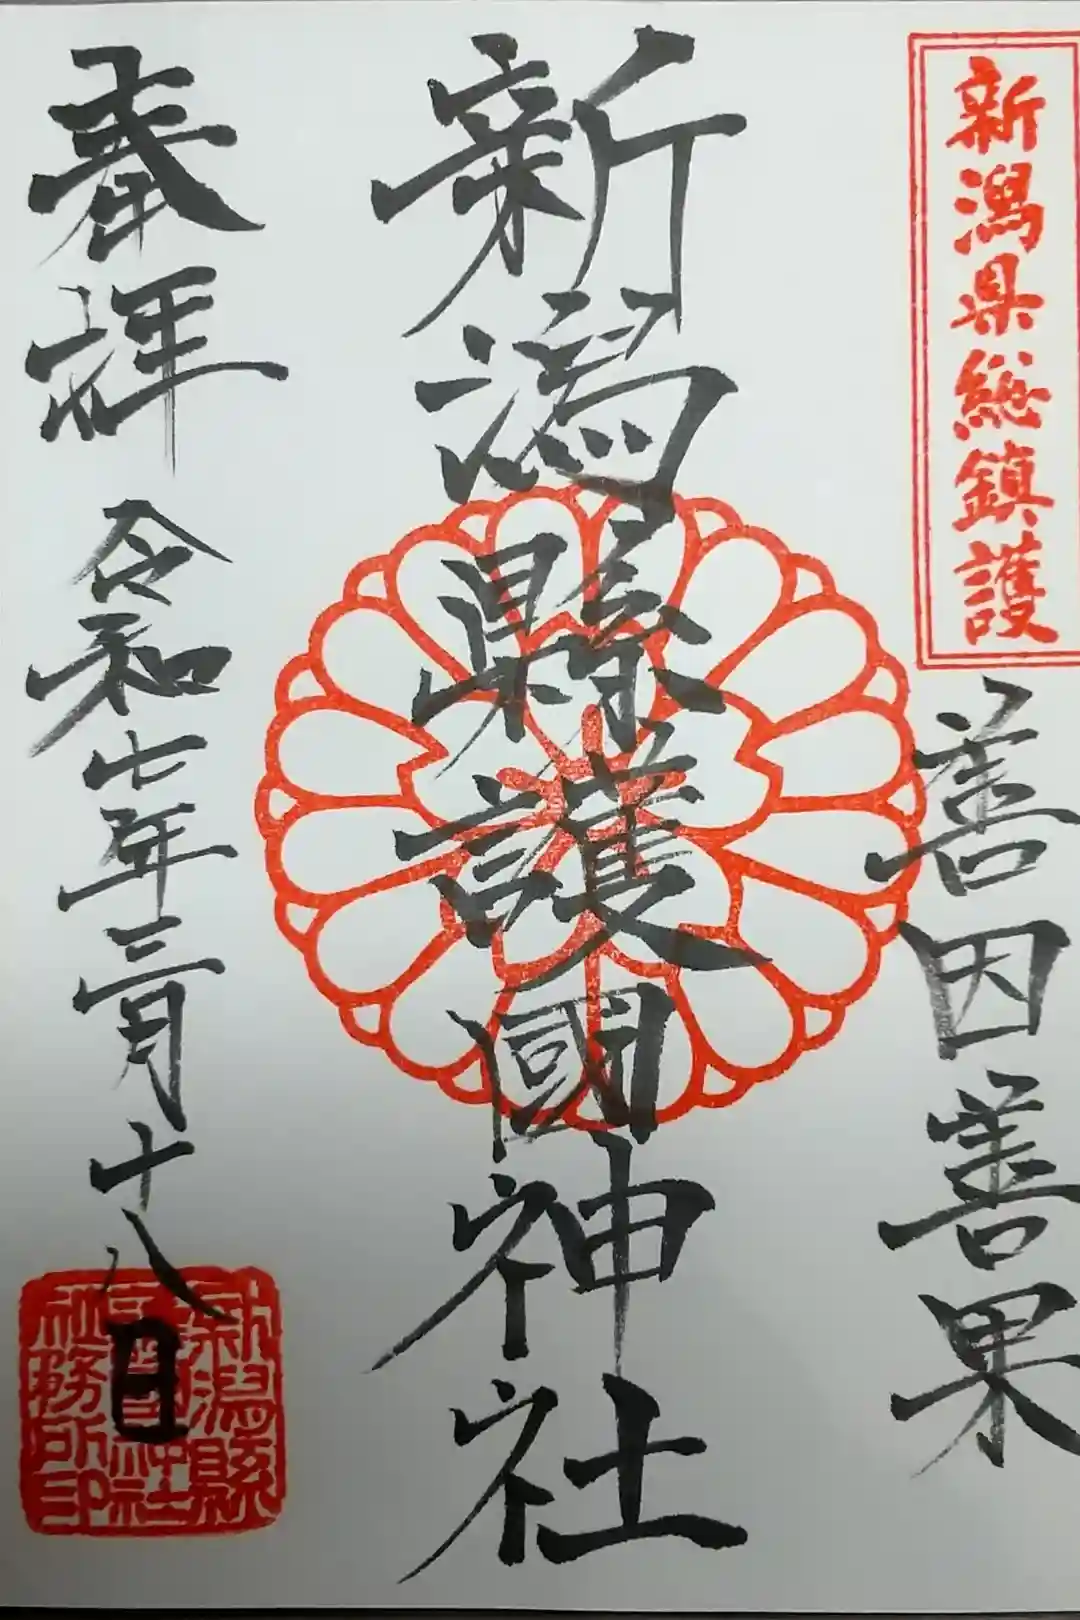 新潟県総鎮護
善因善果
新潟縣護國神社
奉拝
令和七年三月十八日
新潟縣
護國神社
社務所印